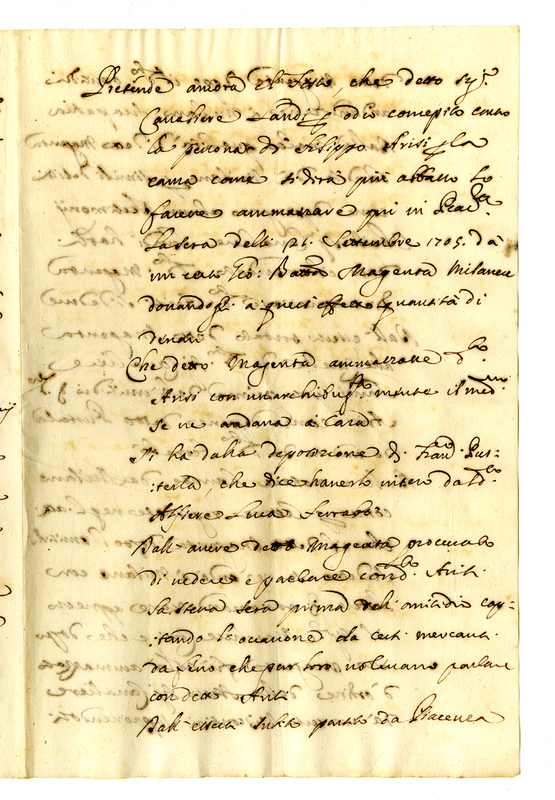 Pretende ancora il Fisco, che detto Sig.r
Cavaliere Landi p odio concepito contro
la persona di Filippo Arisi p la
causa come si dirà più abbasso lo
facesse ammazzare qui in Piac.a
la sera delli 21. Settembre 1705. da
un certo Gio: Batta Magenta Milanese
donandogli a quest'effetto quantità di
denari
Che detto Magenta ammazzasse d.to
Arisi con un archibugiata mentre il med.mo
se ne andava a Casa
Si ha dalla deposizione di Fran.co Pus-
:terla, che dice haverlo inteso da d.to
Alfiere Luca Ferrabò
Dall' avere detto Magenta procurato
di vedere e parlare con d.to Arisi
la stessa sera prima dell' omicidio cap-
:tando l'occasione da certi mercanti
da fieno che pur loro volevano parlare
con detto Arisi
Dall' essersi subito partito da Piacenza